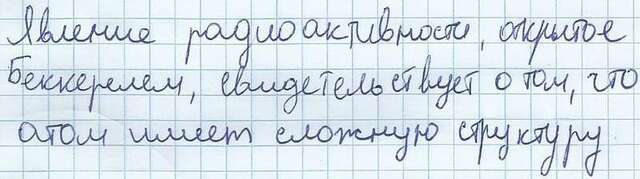 Явление радиоактивности, открытое
Беккерелем, свидетельствует о том, что
атом имеет сложную структуру